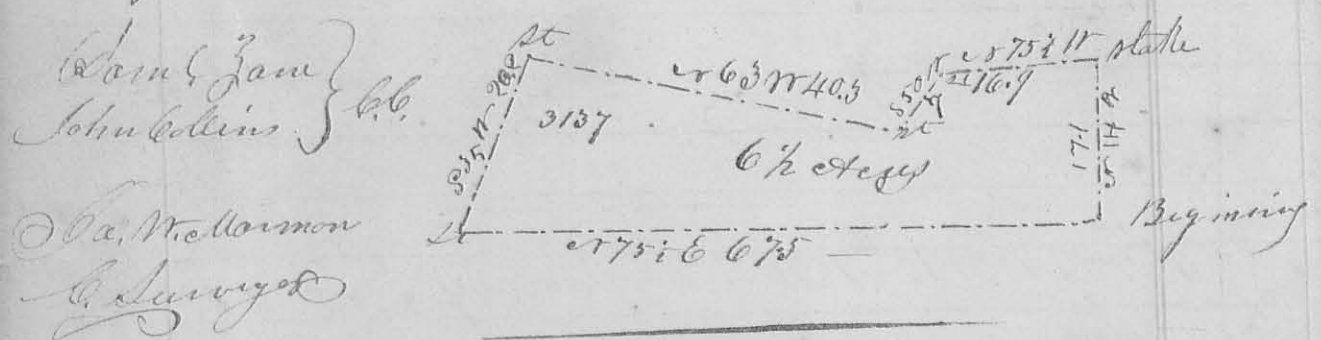 Saml Zane
John Collins } C.C.
Ja. W. Marmon
C. Surveyor
St
S 35 W 20.8
3137
N 63 W 40.3
St
N 75 ½ W
16.9
stake
17.1
6 ½ Acres
St
N 75 ½ E 67.5
Beginning